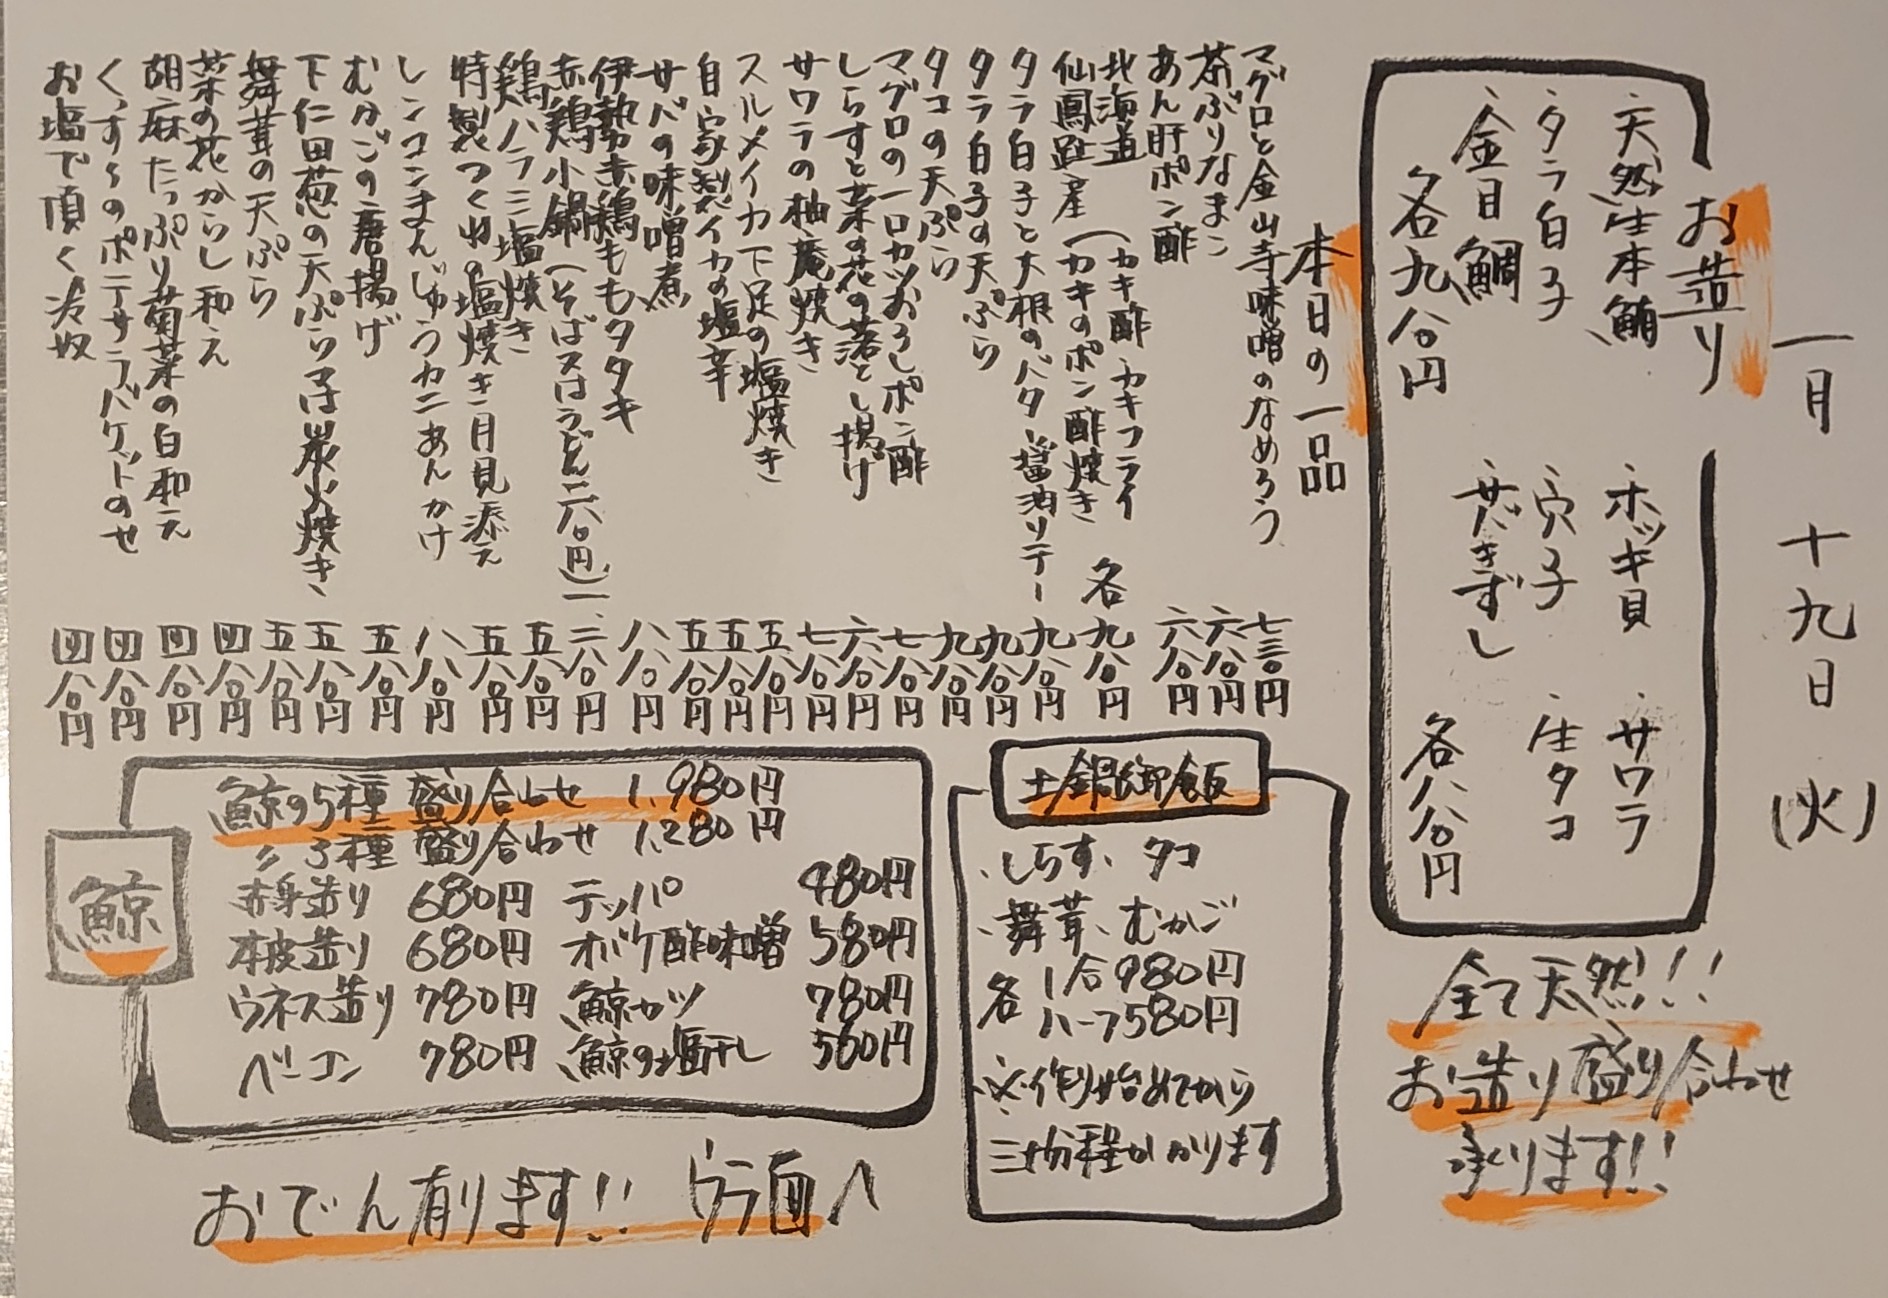 一月 十九日 (火)
お造り
・天然生本鮪 ・ホッキ貝 ・サワラ
・タラ白子 ・穴子 ・生タコ
・金目鯛 ・サバきずし
各九八〇円 各八八〇円
全て天然!!
お造り盛り合わせ
承ります!!
本日の一品
マグロと金山寺味噌のなめろう 七三〇円
茶ぶりなまこ 六八〇円
あん肝ポン酢 六八〇円
北海道 (カキ酢・カキフライ
仙鳳趾産 (カキのポン酢焼き 各九八〇円
タラ白子と大根のバター醤油ソテー 九八〇円
タラ白子の天ぷら 九八〇円
タコの天ぷら 九八〇円
マグロの一口カツおろしポン酢 七八〇円
しらすと菜の花の落とし揚げ 六八〇円
サワラの柚庵焼き 七八〇円
スルメイカ下足の塩焼き 五八〇円
自家製イカの塩辛 五八〇円
サバの味噌煮 五八〇円
伊勢赤鶏ももタタキ 八八〇円
赤鶏小鍋(そば又はうどん二八〇円) 一、二八〇円
鶏ハラミ塩焼き 五八〇円
特製つくねの塩焼き月見添え 五八〇円
レンコンまんじゅうカニあんかけ 八八〇円
むかごの唐揚げ 五八〇円
下仁田葱の天ぷら又は炭火焼き 五八〇円
舞茸の天ぷら 五八〇円
菜の花からし和え 四八〇円
胡麻たっぷり菊菜の白和え 四八〇円
くんすらのポテサラバケットのせ 四八〇円
お塩で頂く冷奴 四八〇円
土鍋御飯
・しらす、タコ
・舞茸、むかご
各 1合980円
ハーフ580円
※作り始めてから
三十分程かかります
鯨
鯨の5種盛り合わせ 1,980円
〃 3種盛り合わせ 1,280円
赤身造り 680円 テッパ 480円
本皮造り 680円 オバケ酢味噌 580円
ウネス造り 780円 鯨カツ 780円
ベーコン 780円 鯨の塩干し 560円
おでん有ります!! ウラ面へ